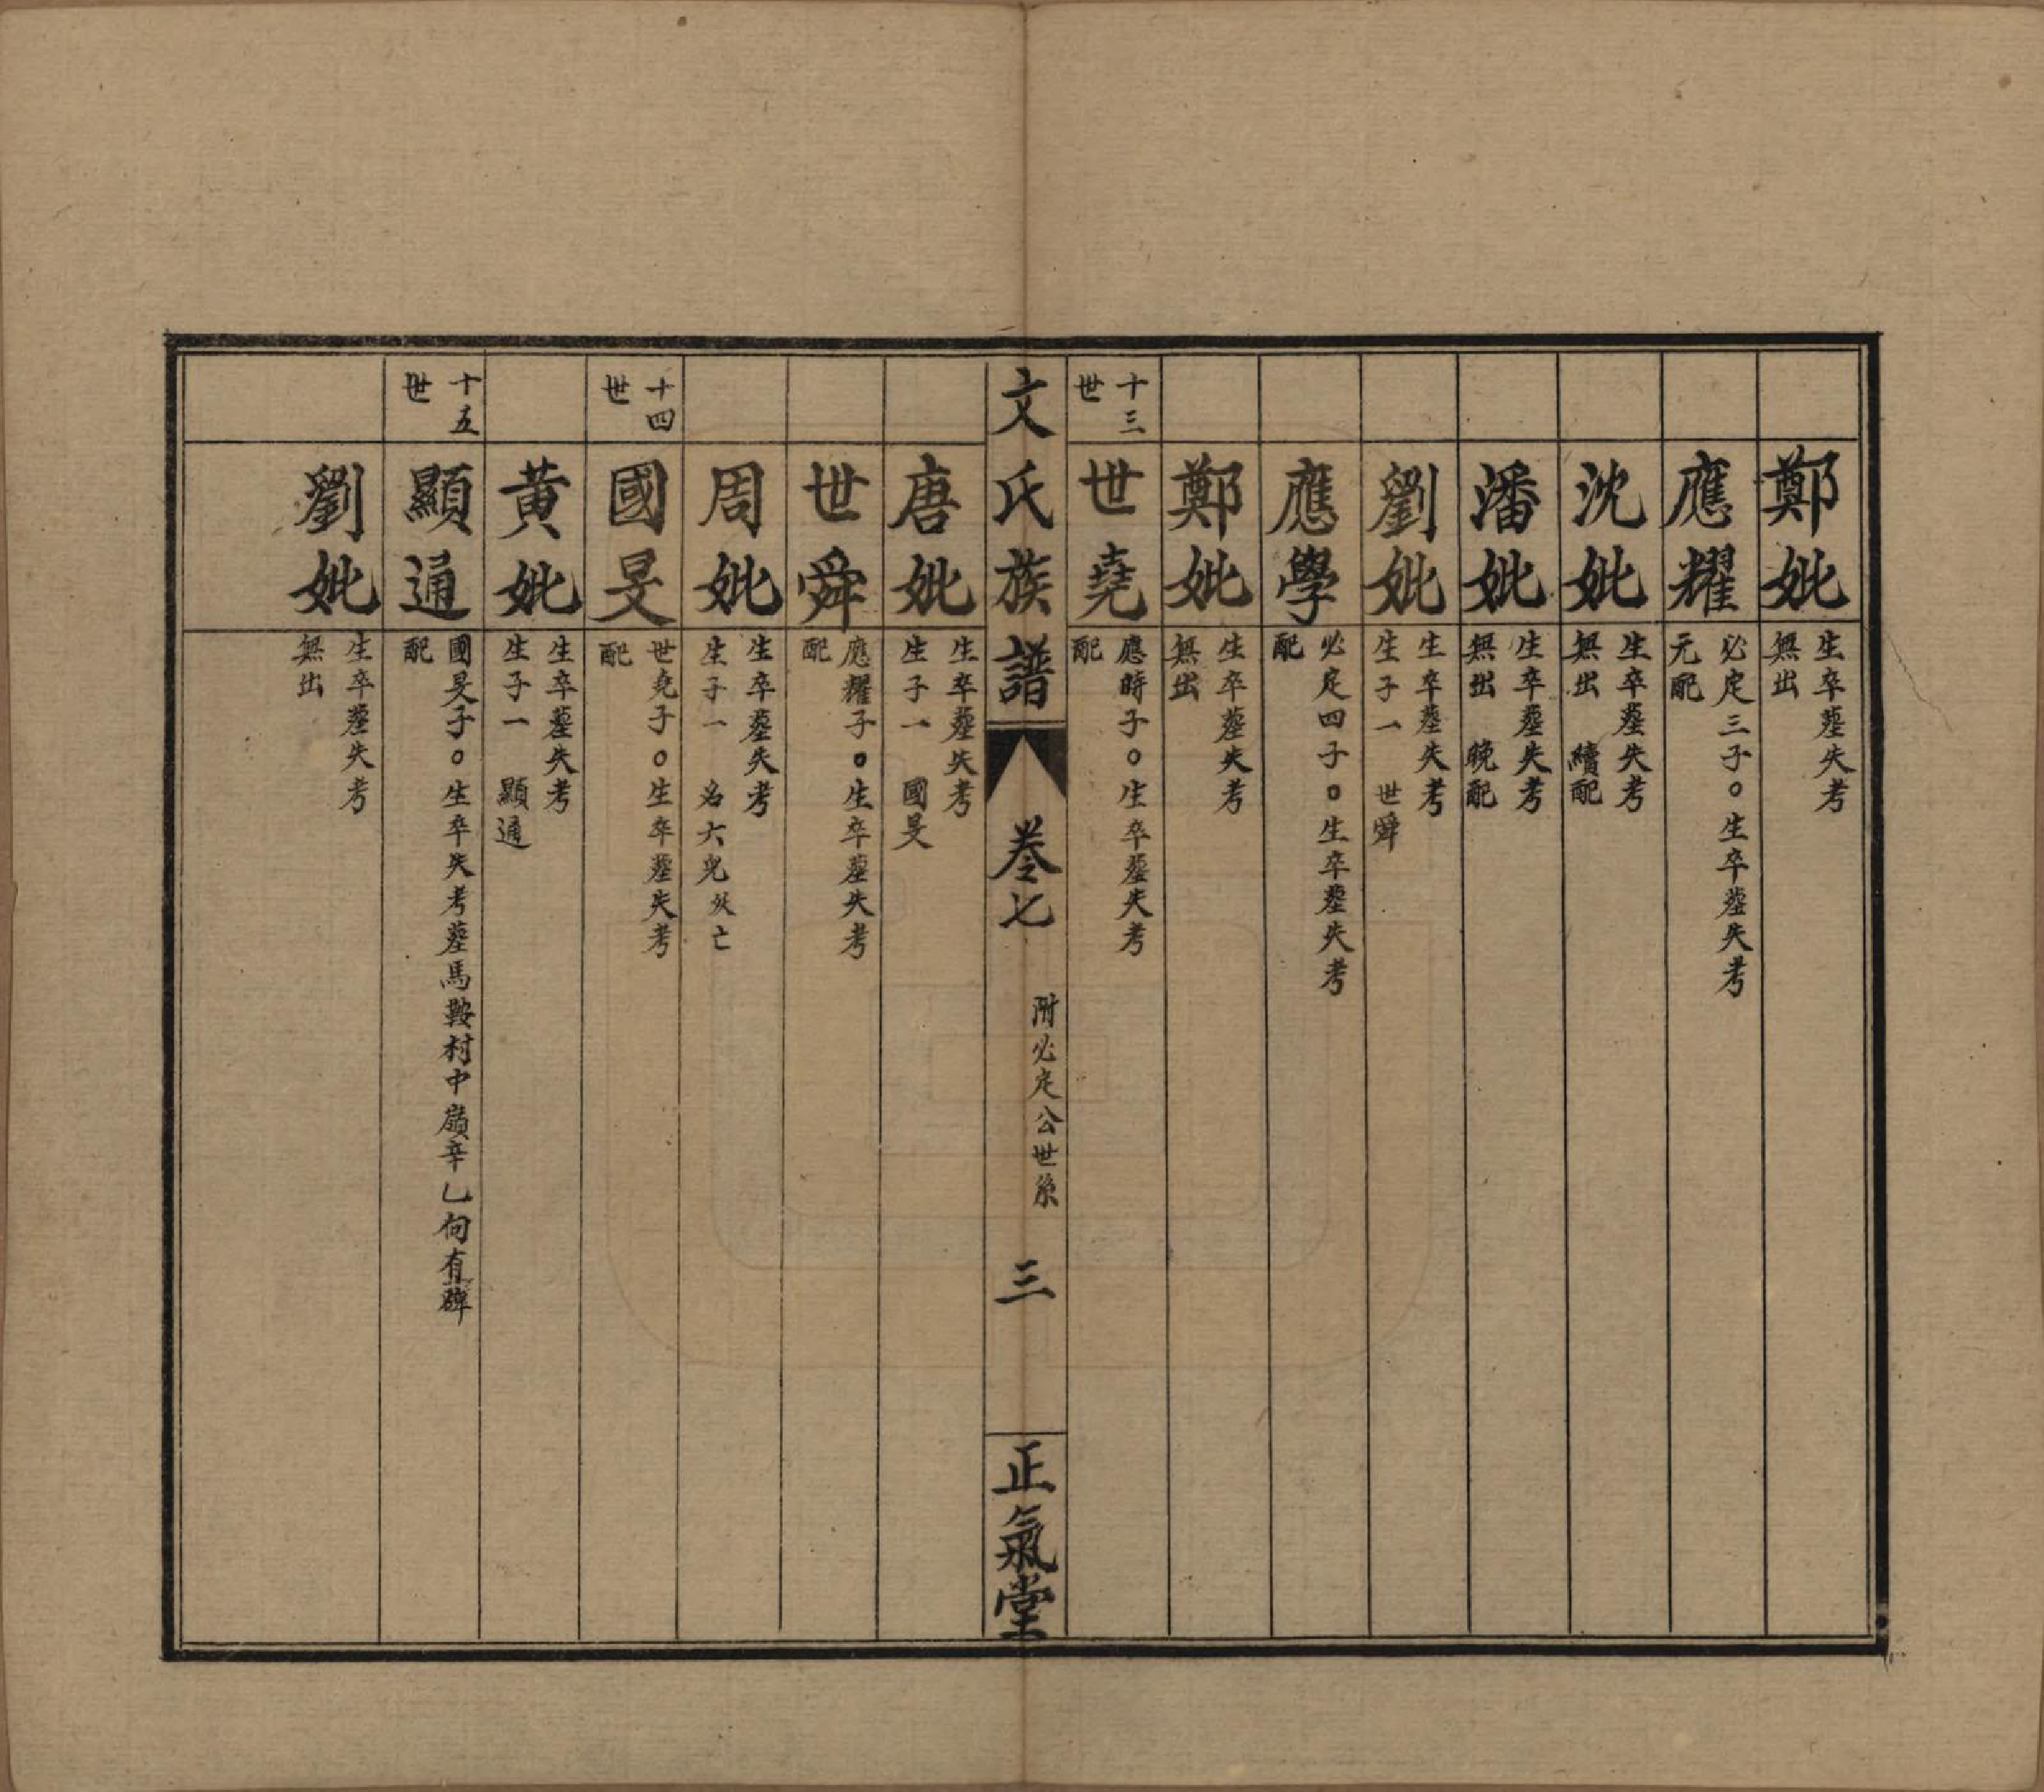 鄭妣
生卒塟失考
無出
應耀
必定三子○生卒塟失考
元配
沈妣
生卒塟失考
無出 續配
潘妣
生卒塟失考
無出 晚配
劉妣
生卒塟失考
生子一 世舜
應學
必定四子○生卒塟失考
配
鄭妣
生卒塟失考
無出
十三
世
世堯
應時子○生卒塟失考
配
文氏族譜
卷七
附必定公世系
三
正氣堂
唐妣
生卒塟失考
生子一 國旻
世舜
應耀子○生卒塟失考
配
周妣
生卒塟失考
生子一 名六兒 亡
十四
世
國旻
世尭子○生卒塟失考
配
黃妣
生卒塟失考
生子一 顯通
十五
世
顯通
國旻子○生卒失考塟馬鞍村中嶺辛乙向有碑
配
劉妣
生卒塟失考
無出